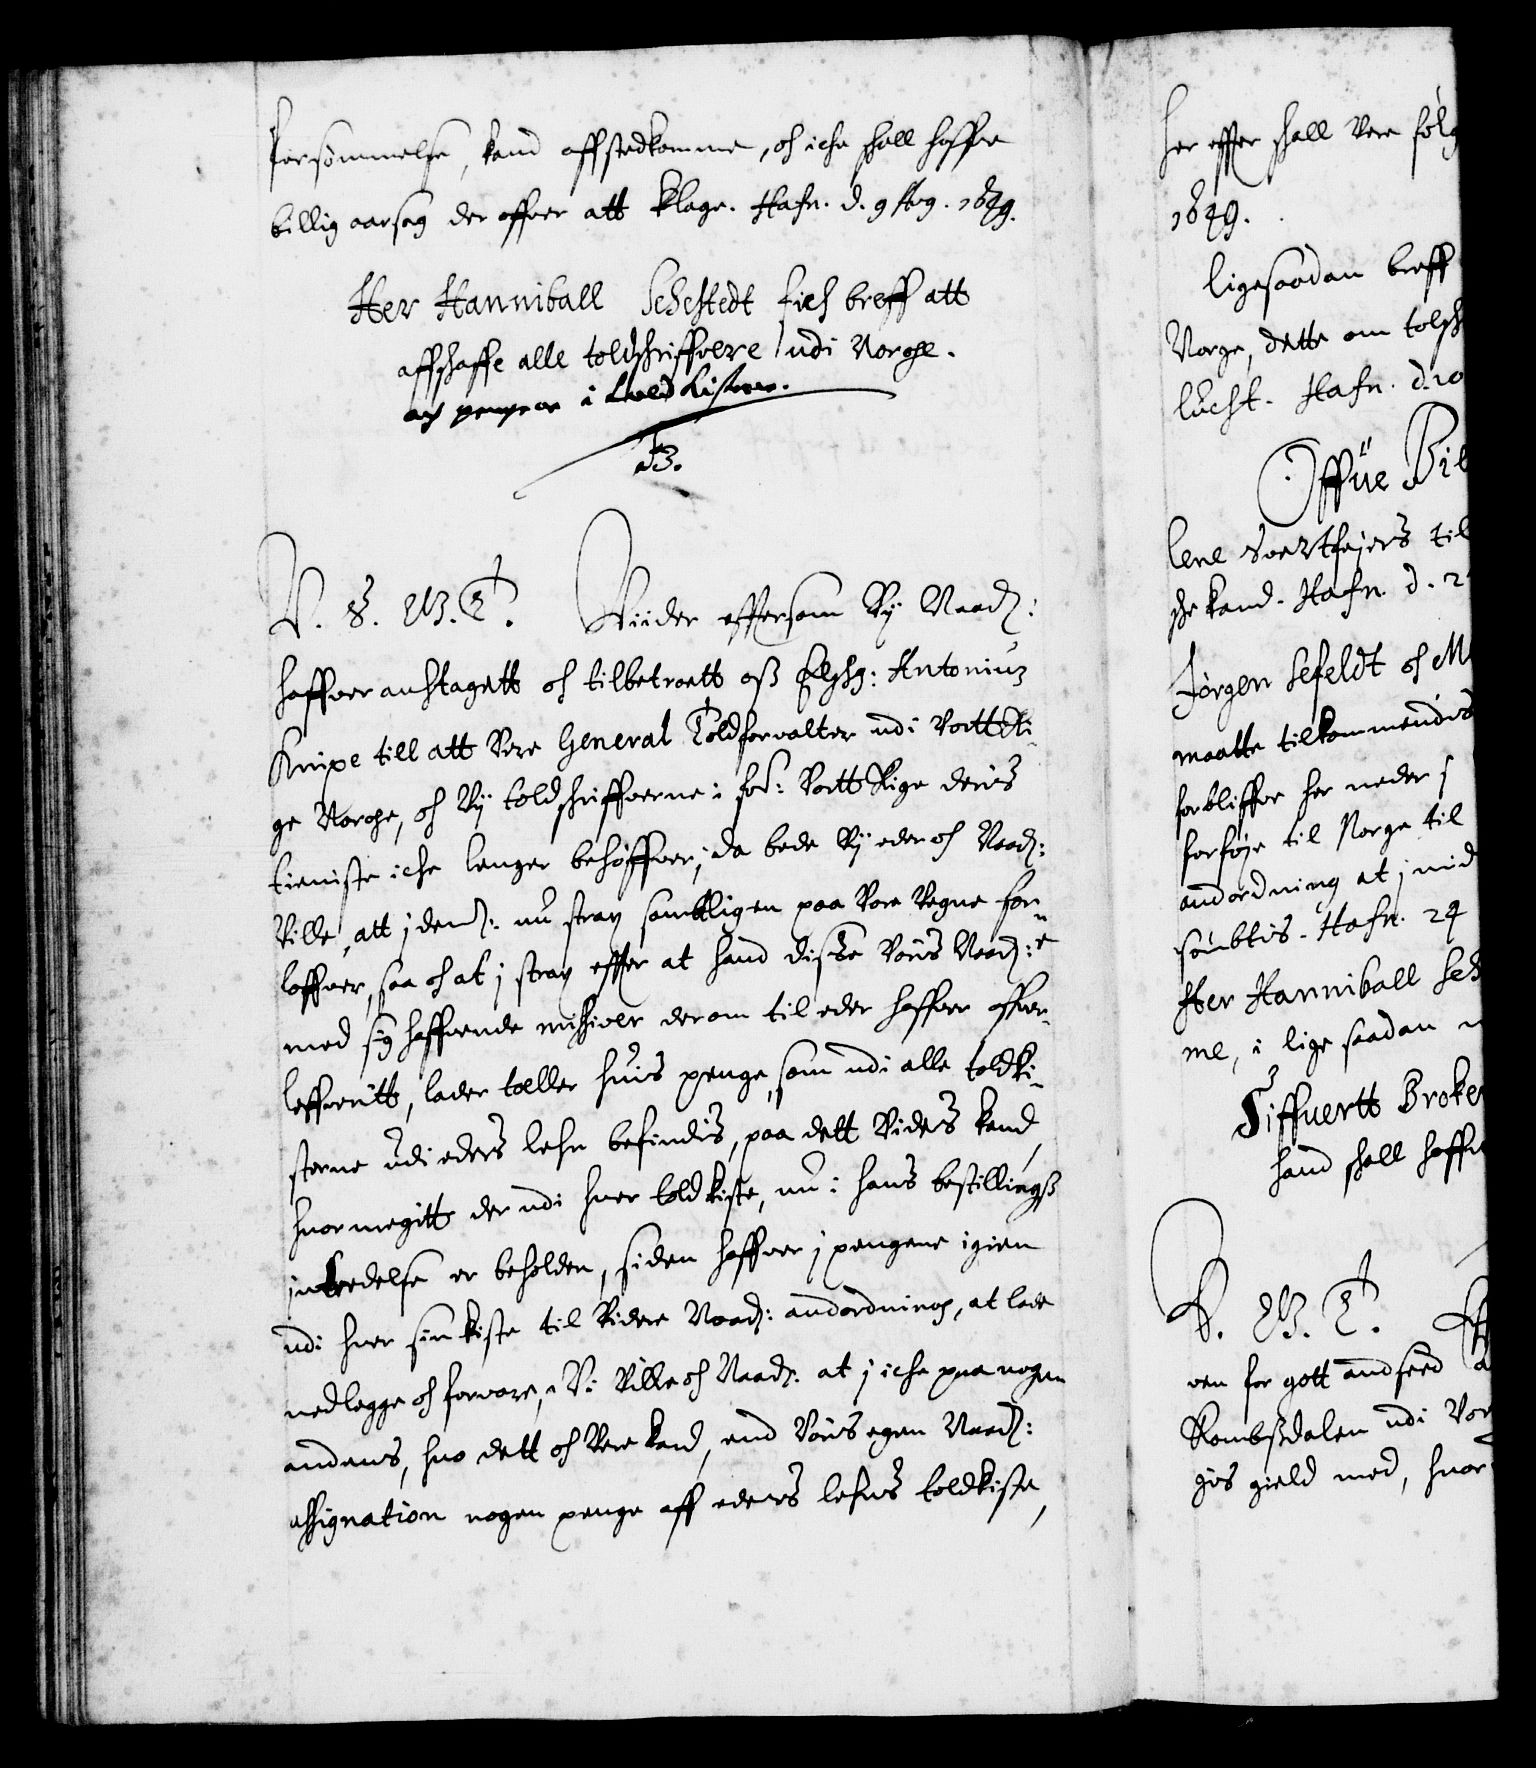 forsømmelse, kand affstedkomme, och iche schall haffue
billig aarsag der offuer att klage. Hafn. d. 9 Aug. 1649.
Her Hanniball Sehestedt fich breff att
affschaffe alle toldschriffuere udi Norge.
och pengene i told Kisterne.
C. 4. W. G. T. Viider efftersom Vÿ Naadl:
haffuer anhtagett och tilbetroett oß Elschl: Antonius
Knipe till att vere General Toldforvalter udi vortt Ri-
ge Norge, och Vÿ toldschriffuerne i for: vortt Rige deris
tieniste iche lenger behøffuer; da bede Vÿ eder och Naadl:
ville, att j dem: nu strax samtligen paa vore vegne for-
loffuer, saa och at j strax effter at hand disse voris Naadl:e
med sig haffuende missiver derom til eder haffuer offuer-
leffueritt, lader tæller huis penge, som udi alle toldki-
sterne udi eders lehn befindis, paa dett videris kand,
huor megitt der udi huer toldkiste, nu i hans bestillings
jntredelse er beholden, siden haffuer j pengene igien
udi huer sin kiste til videre Naadl: andordning, at lade
nedlegge och forvare, Vi ville och Naadl: at j iche paa nogen
andens, huo dett och vere kand, end voris egen Naadl:
assignation nogen penge aff eders lehns toldkiste,
her effter schall vere følg
1649.
ligesaadan breff
Norge, dette om toldsch
lucht. Hafn. d. 10
Offue Bil
lene Svertfejers til
sche kand. Hafn. d. 2
Jørgen Sefeldt och M
maatte tilkommendis
forbliffue her neder
forføje til Norge til
andordning at j mid
sambtlis. Hafn. 24
Her Hanniball Seh
me, i lige saadan
Siffuertt Broke
hand schall haffue
C. 4. W. G. T.
ven for gott andseed
Rombsdalen udi Vor
gis gield med, huor